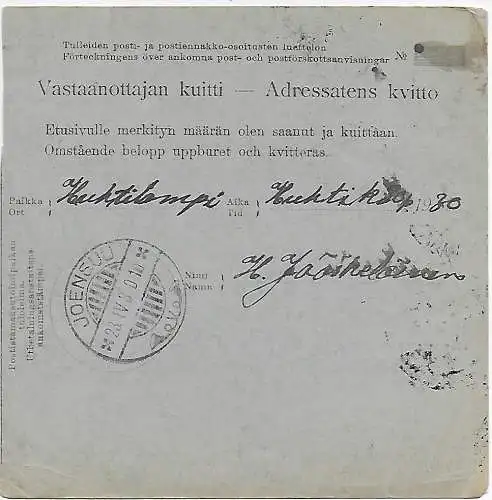 Tulleiden posti- ja postiennakko-osoitusten luettelon
Förteckningens över ankomna post- och postförskottsanvisningar №
Vastaanottajan kuitti — Adressatens kvitto
Etusivulle merkityn määrän olen saanut ja kuittaan.
Omstående belopp uppburet och kvitteras.
Paikka Huhtilampi Aika Huhtik 1930
Ort Tid
Nimi H. Jääskeläinen
Namn
JOENSUU
Postistamskatoimipaikan
tuloleima.
Utbetalningsanstaltens
ankomststämpel.